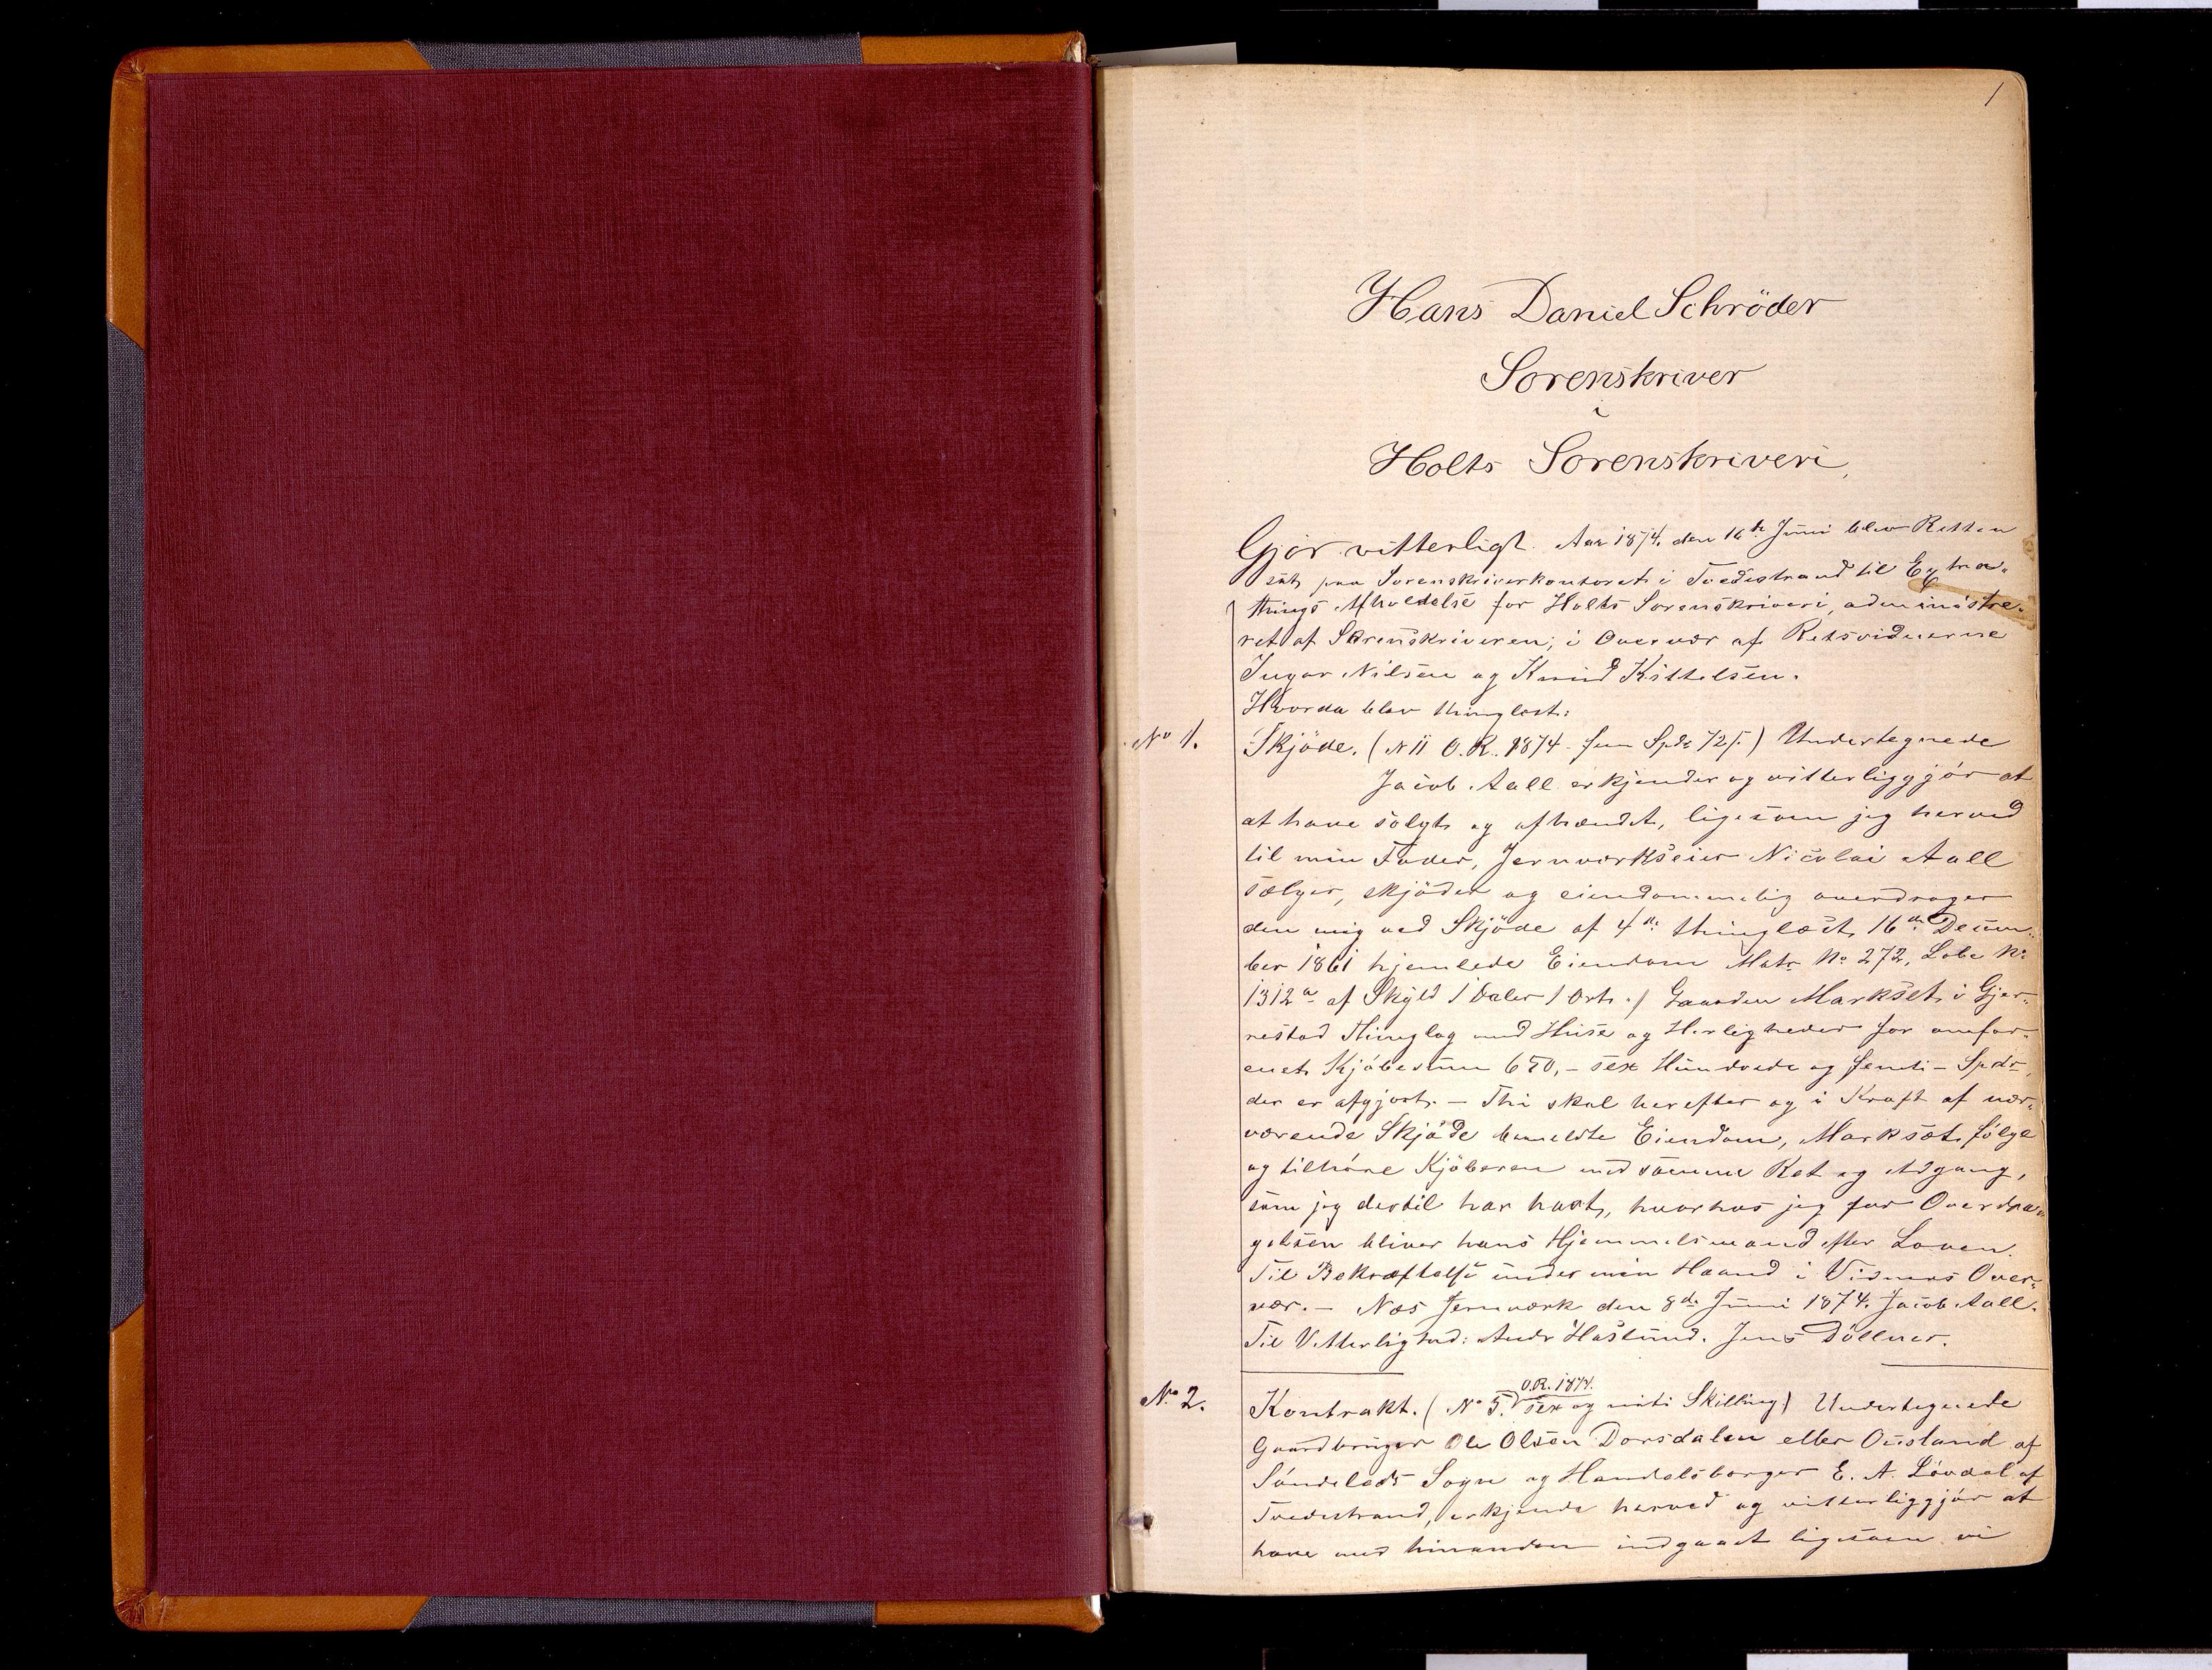 1
Hans Daniel Schröder
Sorenskriver
i
Holts Sorenskriveri,
Gjör vitterligt. Aar 1874. den 16de Juni blev Retten
sat paa Sorenskriverkontoret i Tvedestrand til Extra-
things Afholdelse for Holts Sorenskriveri, administre-
ret af Sorenskriveren, i Overvær af Retsvidnerne
Ingar Nilsen og Knud Kittelsen.
Hvorda blev thinglæst:
No 1. Skjöde. (N 11 O.R. 1874 fem Spdr 72 ſ.) Undertegnede
Jacob Aall erkjender og vitterliggjör at
at have solgt og afhændet, ligesom jeg herved
til min Fader, Jernværkseier Nicolai Aall
sælger, skjöder og eiendommelig overdrager
den mig ved Skjöde af 4de thinglæst 16de Decem-
ber 1861 hjemlede Eiendom Matr No 272, Lobe No
1312a af Skyld 1 Daler 1 Ort / Gaarden Markset i Gjer-
restad Thinglag med Huse og Herligheder for omfor-
enet Kjöbesum 650,- sex Hundrede og femti - Spdr,
der er afgjort. - Thi skal herefter og i Kraft af nær-
værende Skjöde bemeldte Eiendom, Markset fölge
og tilhöre Kjöberen med samme Ret og Adgang,
som jeg dertil har havt, hvorhos jeg for Overdra-
gelsen bliver hans Hjemmelsmand efter Loven.
Til Bekræftelse under min Haand i Vidners Over-
vær. - Næs Jernværk den 8de Juni 1874. Jacob Aall.
Til Vitterlighed: Andr Haslund. Jens Döllner.
O.R. 1874.
No 2. Kontrakt. (No 5. sex og niti Skilling) Undertegnede
Gaardbruger Ole Olsen Dorsdalen eller Ousland af
Söndeleds Sogn og Handelsborger E. A. Lövdal af
Tvedestrand, erkjende herved og vitterliggjör at
have med hinanden indgaaet ligesom vi